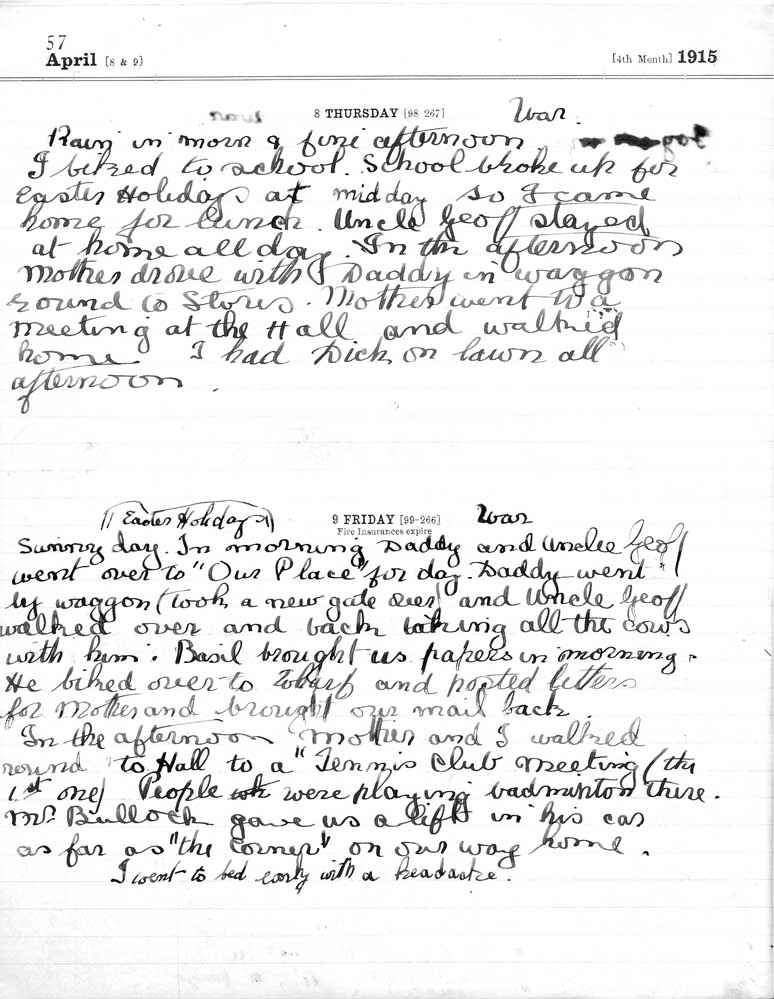 57
April [8 & 9] [4th Month] 1915
8 THURSDAY [98-267] War.
Rain in morn & fine afternoon.
I biked to school. School broke up for
Easter Holidays at midday so I came
home for lunch. Uncle Geoff stayed
at home all day. In the afternoon
Mother drove with Daddy in waggon
round to Stores. Mother went to a
meeting at the Hall and walked
home. I had Dick on lawn all
afternoon.
(Easter Holidays) 9 FRIDAY [99-266] War
Fire Insurances expire
Sunny day. In morning Daddy and Uncle Geoff
went over to "Our Place" for day. Daddy went
by waggon (took a new gate over) and Uncle Geoff
walked over and back taking all the cows
with him. Basil brought us papers in morning.
He biked over to Wharf and posted letters
for Mother and brought our mail back.
In the afternoon Mother and I walked
round to Hall to a "Tennis Club meeting (the
1.st one) People were playing badminton there.
Mr. Bullock gave us a lift in his car
as far as "the Corner" on our way home.
I went to bed early with a headache.